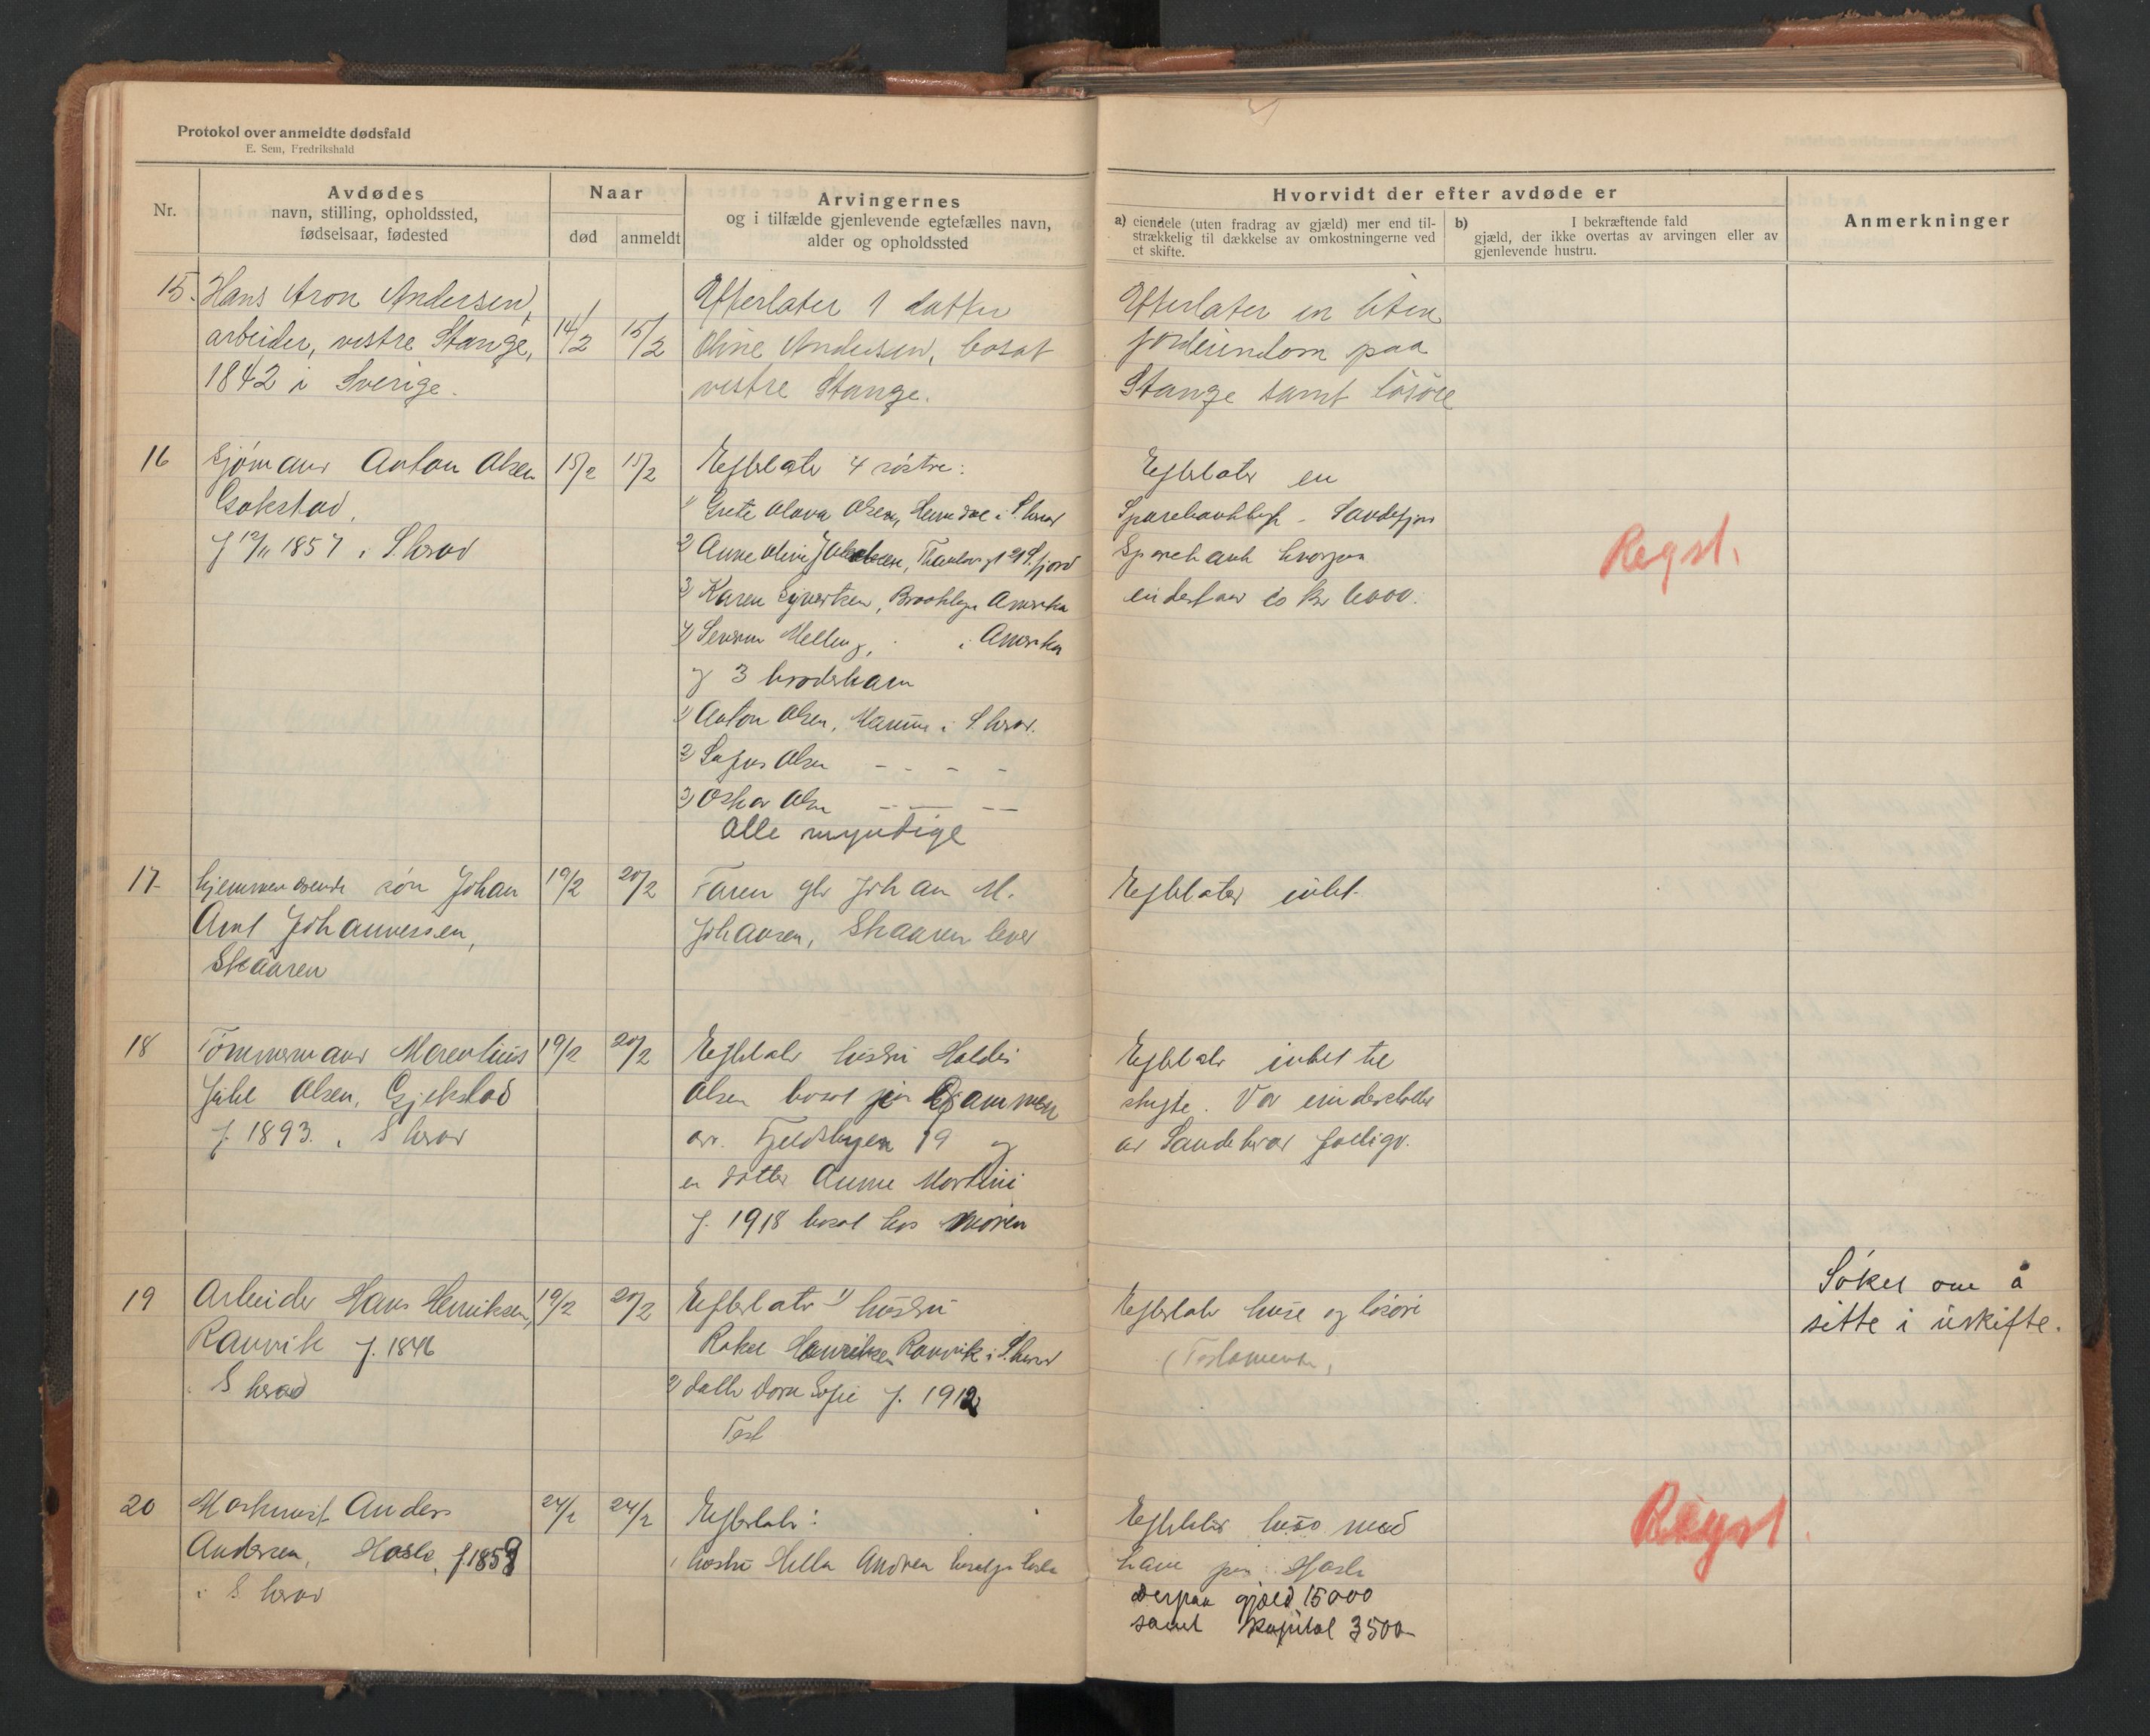 Protokol over anmeldte dødsfald
E. Sem, Fredrikshald
Nr.
Avdødes
navn, stilling, opholdssted,
fødselsaar, fødested
Naar
død
anmeldt
Arvingernes
og i tilfælde gjenlevende egtefælles navn,
alder og opholdssted
Hvorvidt der efter avdøde er
a) eiendele (uten fradrag av gjæld) mer end til-
strækkelig til dækkelse av omkostningerne ved
et skifte.
b) I bekræftende fald
gjæld, der ikke overtas av arvingen eller av
gjenlevende hustru.
Anmerkninger
15. Hans Aron Andersen,
arbeider, vestre Stange,
1842 i Sverige.
14/2
15/2
Efterlater 1 datter
Oline Andersen, bosat
vestre Stange.
Efterlater en liten
jordeiendom paa
Stange samt løsøre
16
Sjømand Anton Olsen
Gokstad,
f 12/11 1857 i S. herad
15/2
15/2
Efterlater 4 søstre:
1) Grete Olava Olsen, i S. herad
2) Anne Oline Jakobsen, S. fjord
3) Karen Syvertsen, Brooklyn Amerika
4) i Amerika
og 3 broderbarn
1) Anton Olsen, i S. herad.
2) Olsen - - - -
3) Oskar Olsen - — —
Alle myndige
Efterlater en
Sandefjord
Sparebank hvorpaa
indestaar ca kr 6000.
Regst.
17
hjemmeværende søn Johan
Arnt Johannessen,
Skaaren
19/2
20/2
Faren Johan M.
Johansen, Skaaren lever
Efterlater intet
18
Tømmermand Marentius
Juhl Olsen, Gjekstad
f. 1893. i S herad
19/2
20/2
Efterlater hustru Haldis
Olsen bosat
Fjeldbyen 19 og
en datter Anne Martine
f. 1918 bosat hos moren
Efterlater intet til
skifte. Var understøttet
av Sandeherad fattigv.
19
Arbeider Hans Henriksen,
Ranvik f. 1846
i S herad
19/2
20/2
Efterlater 1) hustru
Rakel Henriksen Ranvik i S. herad
2) datter Dora Sofie f. 1912
Test
Efterlater huse og løsøre
(Testamente)
Søker om å
sitte i uskifte.
20
Maskinist Anders
Andersen, Hasle, f. 1859
i S. herad
24/2
24/2
Efterlater:
hustru Andrea bosat pr Hasle
Efterlater hus med
have paa Hasle
Derpaa gjæld 15000
samt kapital 3500-
Regst.